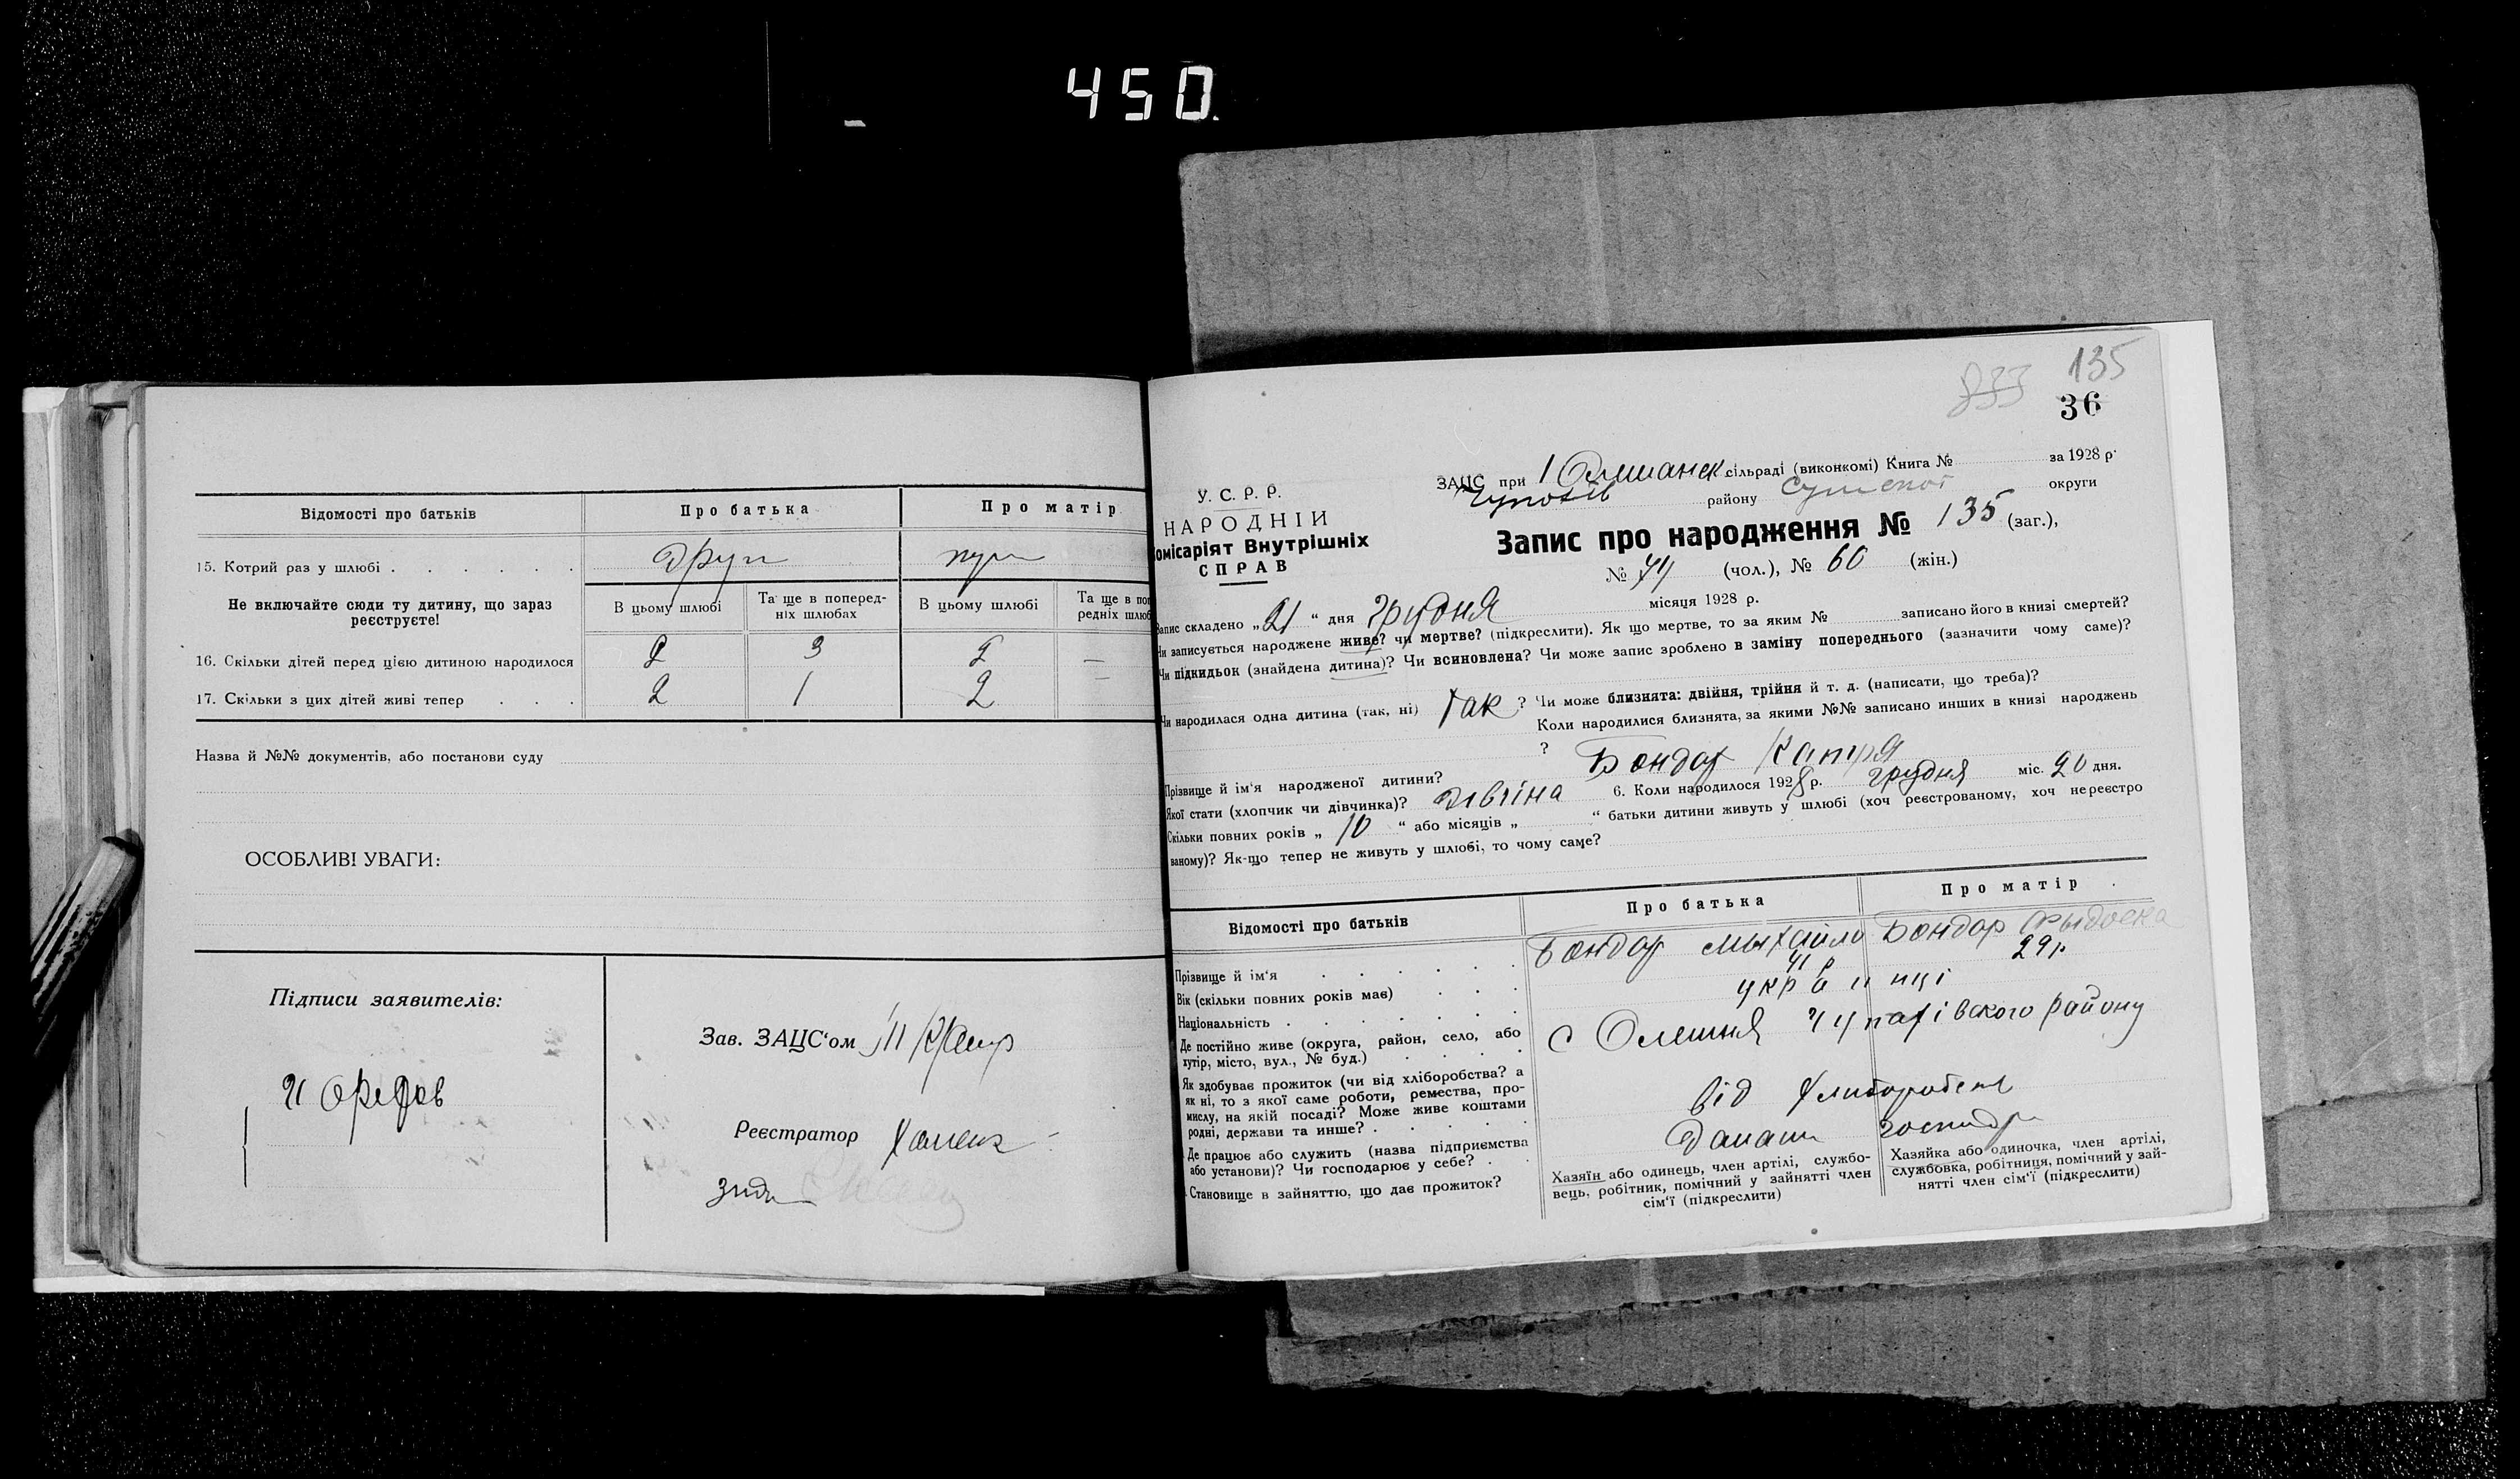 450.
Відомості про батьків
Про батька
Про матір
15. Котрий раз у шлюбі
Не включайте сюди ту дитину, що зараз
реєструєте!
В цьому шлюбі
Та ще в поперед-
ніх шлюбах
В цьому шлюбі
Та ще в поп
редніх шлюб
16. Скільки дітей перед цією дитиною народилося 2 3 2 —
17. Скільки з цих дітей живі тепер . . . 2 1 2 —
Назва й №№ документів, або постанови суду
ОСОБЛИВІ УВАГИ:
Підписи заявителів:
Зав. ЗАЦС'ом
Реєстратор
833 135
36
У. С. Р. Р.
НАРОДНІЙ
омісаріят Внутрішніх
СПРАВ
ЗАЦС при 1 Олешанск сільраді (виконкомі) Книга № за 1928 р.
району Сумской округи
Запис про народження № 135 (заг.),
№ (чол.), № 60 (жін.)
Запис складено „21“ дня Грудня місяця 1928 р.
Чи записується народжене живе? чи мертве? (підкреслити). Як що мертве, то за яким № записано його в книзі смертей?
Чи підкидьок (знайдена дитина)? Чи всиновлена? Чи може запис зроблено в заміну попереднього (зазначити чому саме)?
Чи народилася одна дитина (так, ні) так ? Чи може близнята: двійня, трійня й т. д. (написати, що треба)?
Коли народилися близнята, за якими №№ записано инших в книзі народжень
?
Прізвище й ім'я народженої дитини? Бондар
Якої стати (хлопчик чи дівчинка)? 6. Коли народилося 1928 р. грудня міс. 20 дня.
Скільки повних років „ 10 “ або місяців „ “ батьки дитини живуть у шлюбі (хоч реєстрованому, хоч нереєстро
ваному)? Як-що тепер не живуть у шлюбі, то чому саме?
Відомості про батьків
Про батька
Про матір
Прізвище й ім'я Бондар Мыхайло Бондар
Вік (скільки повних років має) 41 р 29 р.
Національність українці
Де постійно живе (округа, район, село, або
хутір, місто, вул., № буд.)
с Олешня Чупахівского району
Як здобуває прожиток (чи від хліборобства? а
як ні, то з якої саме роботи, ремества, про-
мислу, на якій посаді? Може живе коштами
родні, держави та инше?
від
Де працює або служить (назва підприємства
або установи)? Чи господарює у себе?
Становище в зайняттю, що дає прожиток?
Хазяїн або одинець, член артілі, службо-
вець, робітник, помічний у зайнятті член
сім'ї (підкреслити)
Хазяйка або одиночка, член артілі,
службовка, робітниця, помічний у зай-
нятті член сім'ї (підкреслити)